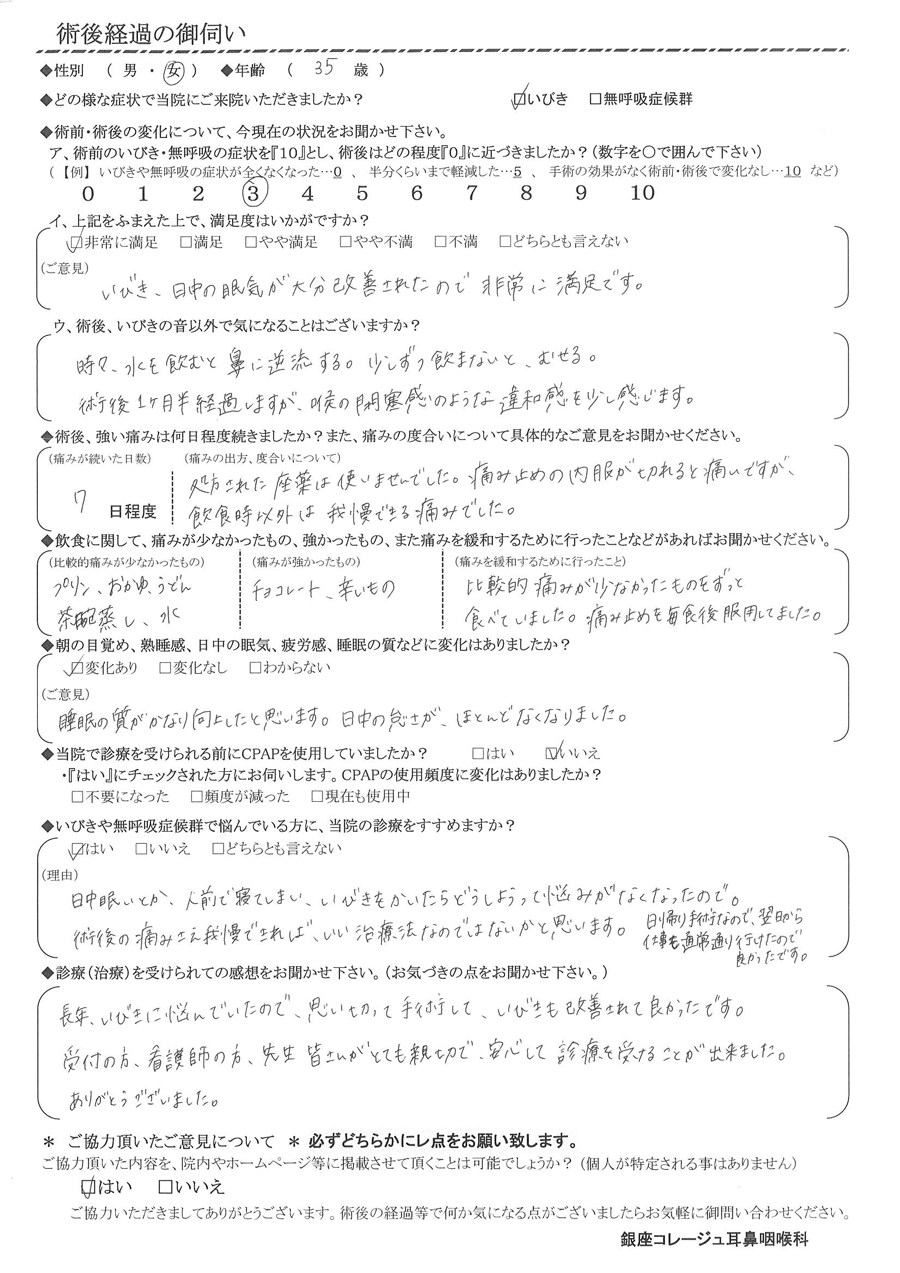 術後経過の御伺い
◆性別 （ 男 ・ 女 ） ◆年齢 （ 35 歳 ）
◆どの様な症状で当院にご来院いただきましたか？ □いびき □無呼吸症候群
◆術前・術後の変化について、今現在の状況をお聞かせ下さい。
ア、術前のいびき・無呼吸の症状を『10』とし、術後はどの程度『0』に近づきましたか？（数字を〇で囲んで下さい）
（【例】 いびきや無呼吸の症状が全くなくなった…0 、 半分くらいまで軽減した…5 、 手術の効果がなく術前・術後で変化なし…10 など）
0 1 2 3 4 5 6 7 8 9 10
イ、上記をふまえた上で、満足度はいかがですか？
□非常に満足 □満足 □やや満足 □やや不満 □不満 □どちらとも言えない
（ご意見）
いびき、日中の眠気が大分改善されたので非常に満足です。
ウ、術後、いびきの音以外で気になることはございますか？
時々、水を飲むと鼻に逆流する。少しずつ飲まないと、むせる。
術後1ヶ月半経過しますが、喉の閉塞感のような違和感を少し感じます。
◆術後、強い痛みは何日程度続きましたか？また、痛みの度合いについて具体的なご意見をお聞かせください。
（痛みが続いた日数） （痛みの出方、度合いについて）
処方された座薬は使いませんでした。痛み止めの内服が切れると痛いですが、
7 日程度 飲食時以外は我慢できる痛みでした。
◆飲食に関して、痛みが少なかったもの、強かったもの、また痛みを緩和するために行ったことなどがあればお聞かせください。
（比較的痛みが少なかったもの） （痛みが強かったもの） （痛みを緩和するために行ったこと）
プリン、おかゆ、うどん チョコレート、辛いもの 比較的痛みが少なかったものをずっと
茶碗蒸し、水 食べていました。痛み止めを毎食後服用してました。
◆朝の目覚め、熟睡感、日中の眠気、疲労感、睡眠の質などに変化はありましたか？
□変化あり □変化なし □わからない
（ご意見）
睡眠の質がかなり向上したと思います。日中の怠さが、ほとんどなくなりました。
◆当院で診療を受けられる前にCPAPを使用していましたか？ □はい □いいえ
・『はい』にチェックされた方にお伺いします。CPAPの使用頻度に変化はありましたか？
□不要になった □頻度が減った □現在も使用中
◆いびきや無呼吸症候群で悩んでいる方に、当院の診療をすすめますか？
□はい □いいえ □どちらとも言えない
（理由）
日中眠いとか、人前で寝てしまい、いびきをかいたらどうしようって悩みがなくなったので。
術後の痛みさえ我慢できれば、いい治療法なのではないかと思います。
日帰り手術なので、翌日から
仕事も通常通り行けたので
良かったです。
◆診療（治療）を受けられての感想をお聞かせ下さい。（お気づきの点をお聞かせ下さい。）
長年、いびきに悩んでいたので、思い切って手術して、いびきも改善されて良かったです。
受付の方、看護師の方、先生皆さんがとても親切で、安心して診療を受けることが出来ました。
ありがとうございました。
＊ ご協力頂いたご意見について ＊ 必ずどちらかにレ点をお願い致します。
ご協力頂いた内容を、院内やホームページ等に掲載させて頂くことは可能でしょうか？（個人が特定される事はありません）
□はい □いいえ
ご協力いただきましてありがとうございます。術後の経過等で何か気になる点がございましたらお気軽に御問い合わせください。
銀座コレージュ耳鼻咽喉科